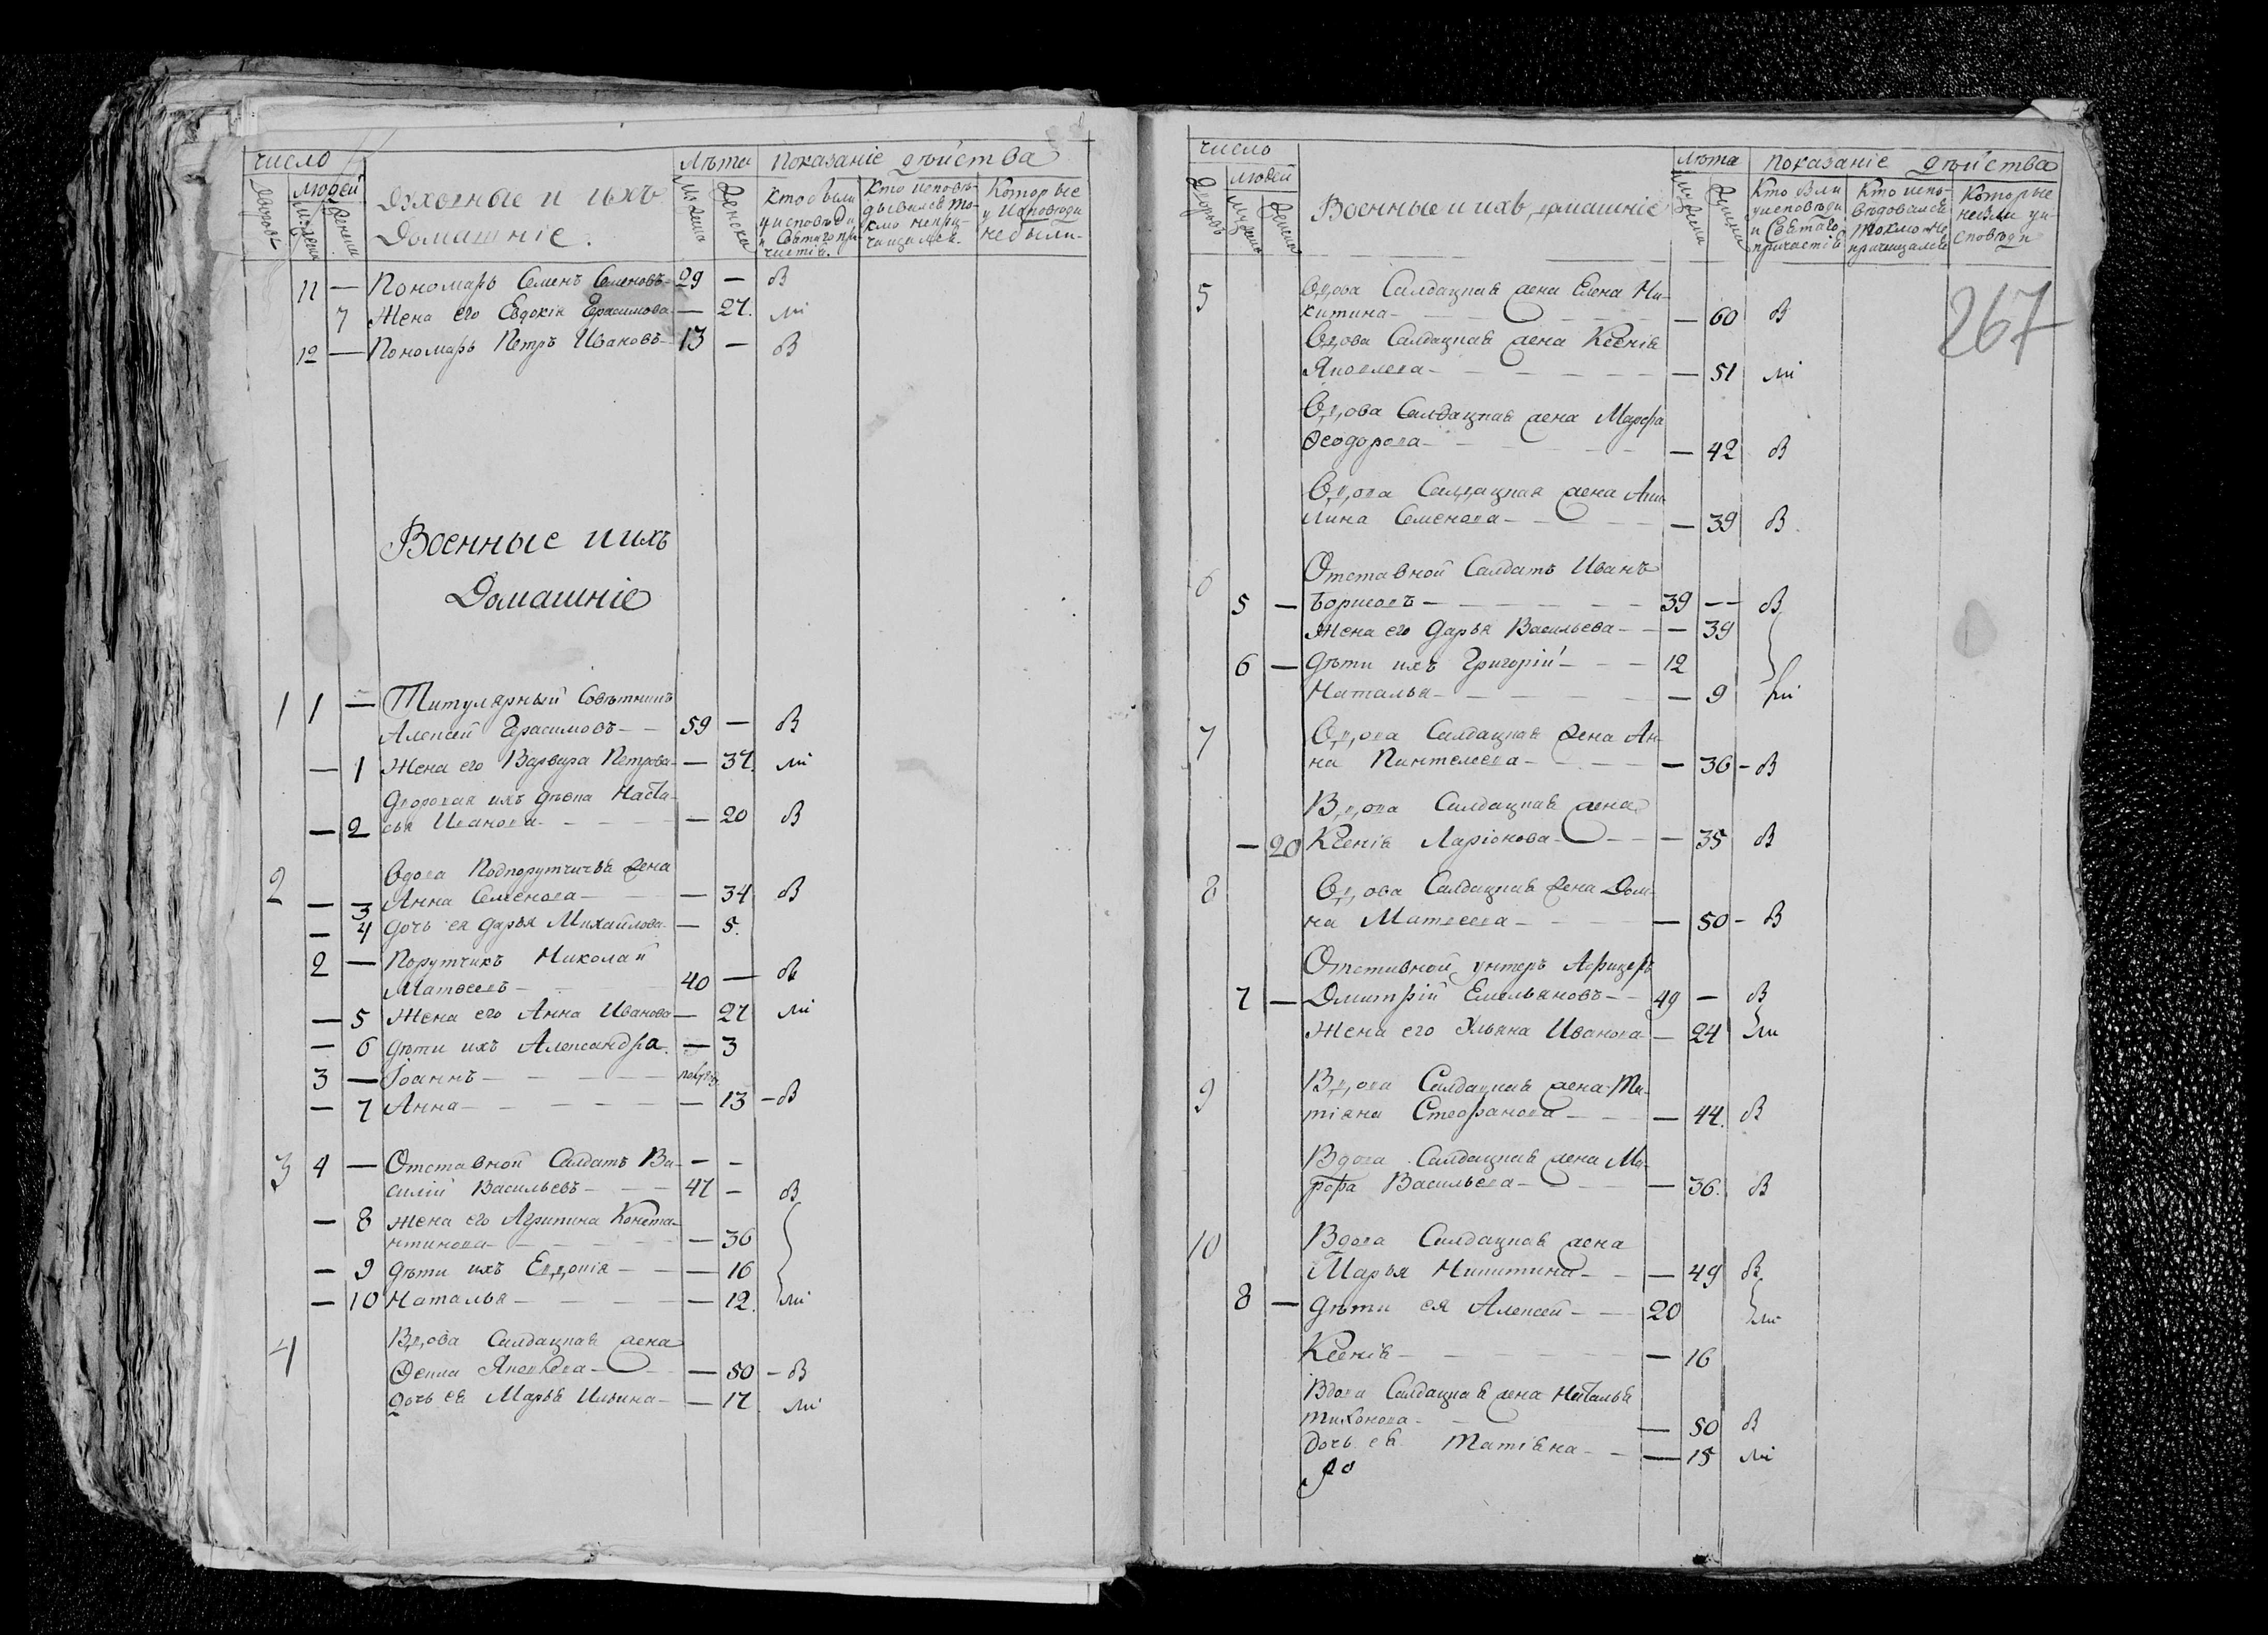 число
людей
Дворовъ
Мужеска
Женска
Духовные и ихъ
Домашніе.
Лѣта
Мужеска
Женска
показаніе дѣйства
Кто были
у исповѣди
и Святаго при-
частія.
Кто исповѣ-
дывался то-
кмо непри-
чащался.
Которые
у исповѣди
небыли.
11 — Пономарь Семенъ Семеновъ 29 — В
7 Жена его Евдокія Герасимова — 27. ли
12 — Пономарь Петръ Ивановъ 13 — В
Военные и ихъ
Домашніе
1 1 — Титулярный Совѣтникъ
Алексей Герасимовъ — 59 — В
— 1 Жена его Варвара Петрова — 37. ли
Дворовая ихъ дѣвка Наста-
— 2 сья Иванова — 20 В
2 Вдова Подпорутчичья жена
— 3 Анна Семенова — 34 В
— 4 дочь ея Дарья Михайлова — 5.
2 — Порутчикъ Николай
Матвеевъ — 40 — В
— 5 Жена его Анна Иванова — 27 ли
— 6 дѣти ихъ Александра — 3
3 — Іоаннъ — полугода
— 7 Анна — 13 — В
3 4 — Отставной Салдатъ Ва- — —
силій Васильевъ — 47 — В
— 8 Жена его Агрипина Конста-
нтинова — 36
— 9 дѣти ихъ Евдокія — 16
— 10 Наталья — 12. ли
4 Вдова Салдацкая жена
Фекла Яковлева — 50 — В
дочь ея Марья Ильина — 17 ли
число
людей
Дворовъ
Мужеска
Женска
Военные и ихъ домашніе
лѣта
Мужеска
Женска
показаніе дѣйства
Кто были
у исповѣди
и Святаго
причастія
Кто испо-
вѣдовался
токмо не
причащался
Которые
небыли у и-
сповѣди
267
5 Вдова Салдацкая жена Елена Ни-
китина — 60 В
Вдова Салдацкая жена Ксенія
Яковлева — 51 ли
Вдова Салдацкая жена Марфа
Феодорова — 42 В
Вдова Салдацкая жена Аку-
лина Семенова — 39 В.
6 Отставной Салдатъ Иванъ
5 — Борисовъ — 39 — В
Жена его Дарья Васильева — 39
6 — Дѣти ихъ Григорій — 12
Наталья — 9 ли
7 Вдова Салдацкая жена Ан-
на Пантелеева — 36 — В
Вдова Салдацкая жена
— 20 Ксенія Ларіонова — 35 В
8 Вдова Салдацкая жена Дом-
на Матвеева — 50 — В
Отставной унтеръ Афицеръ
7 — Дмитрій Емельяновъ — 49 — В
Жена его Ульяна Иванова — 24 ли
9 Вдова Салдацкая жена Та-
тіяна Стефанова — 44. В
Вдова Салдацкая жена Ма-
рфа Васильева — 36. В
10 Вдова Салдацкая жена
Марья Никитина — 49 В
8 — Дѣти ея Алексей — 20 ли
Ксенія — 16
Вдова Салдацкая жена Наталья
Тихонова — 50 В
Дочь ея Татіяна — 15 ли